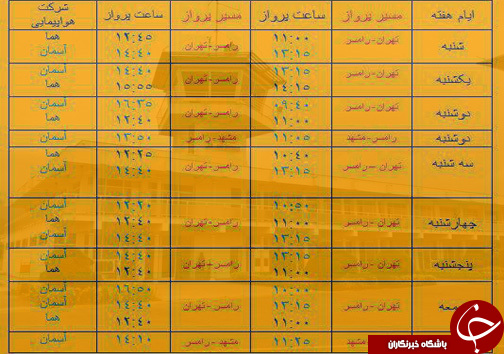 ایام هفته مسیر پرواز ساعت پرواز مسیر پرواز ساعت پرواز شرکت
هواپیمایی
شنبه تهران-رامسر ۱۱:۰۰ رامسر-تهران ۱۲:۴۵ هما
۱۳:۱۵ ۱۴:۴۰ آسمان
یکشنبه تهران-رامسر ۱۳:۱۵ رامسر-تهران ۱۴:۴۰ آسمان
۱۴:۱۵ ۱۵:۵۵ هما
دوشنبه تهران-رامسر ۰۹:۴۰ رامسر-تهران ۱۶:۳۵ آسمان
۱۱:۰۰ ۱۲:۴۰ هما
دوشنبه رامسر-مشهد ۱۱:۰۵ مشهد-رامسر ۱۳:۵۰ آسمان
سه شنبه تهران-رامسر ۱۰:۴۰ رامسر-تهران ۱۲:۲۵ هما
۱۳:۱۵ ۱۴:۴۰ آسمان
چهارشنبه تهران-رامسر ۱۰:۵۰ رامسر-تهران ۱۲:۲۰ آسمان
۱۱:۰۰ ۱۲:۴۰ هما
۱۳:۱۵ ۱۴:۴۰ آسمان
پنجشنبه تهران-رامسر ۱۳:۱۵ رامسر-تهران ۱۴:۴۰ آسمان
۱۱:۰۰ ۱۲:۴۰ هما
تهران-رامسر ۱۰:۰۰ رامسر-تهران ۱۶:۵۰ آسمان
۱۳:۱۵ ۱۴:۴۰ آسمان
۱۱:۰۰ ۱۲:۴۰ هما
۱۱:۲۵ مشهد-رامسر ۱۴:۱۰ آسمان
باشگاه خبرنگاران